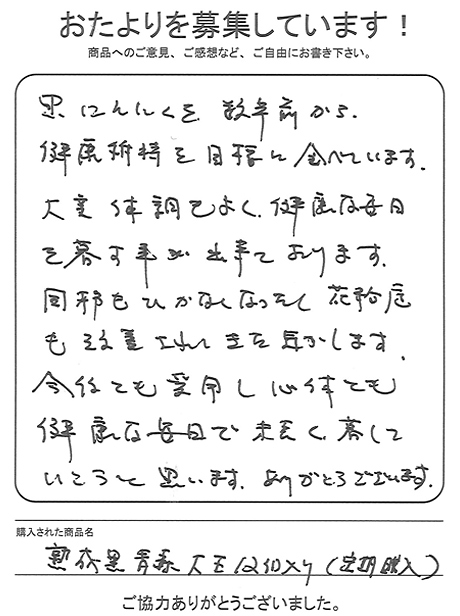 おたよりを募集しています！
商品へのご意見、ご感想など、ご自由にお書き下さい。
黒にんにくを数年前から、
健康維持を目標に食べています。
大変体調もよく、健康な毎日
を暮す事が出来ております。
風邪もひかなくなったし花粉症
も改善されてきた気がします。
今後とも愛用し心体とも
健康な毎日で末長く暮して
いこうと思います。ありがとうございます。
購入された商品名
熟成黒青森大玉12(定期購入)
ご協力ありがとうございました。